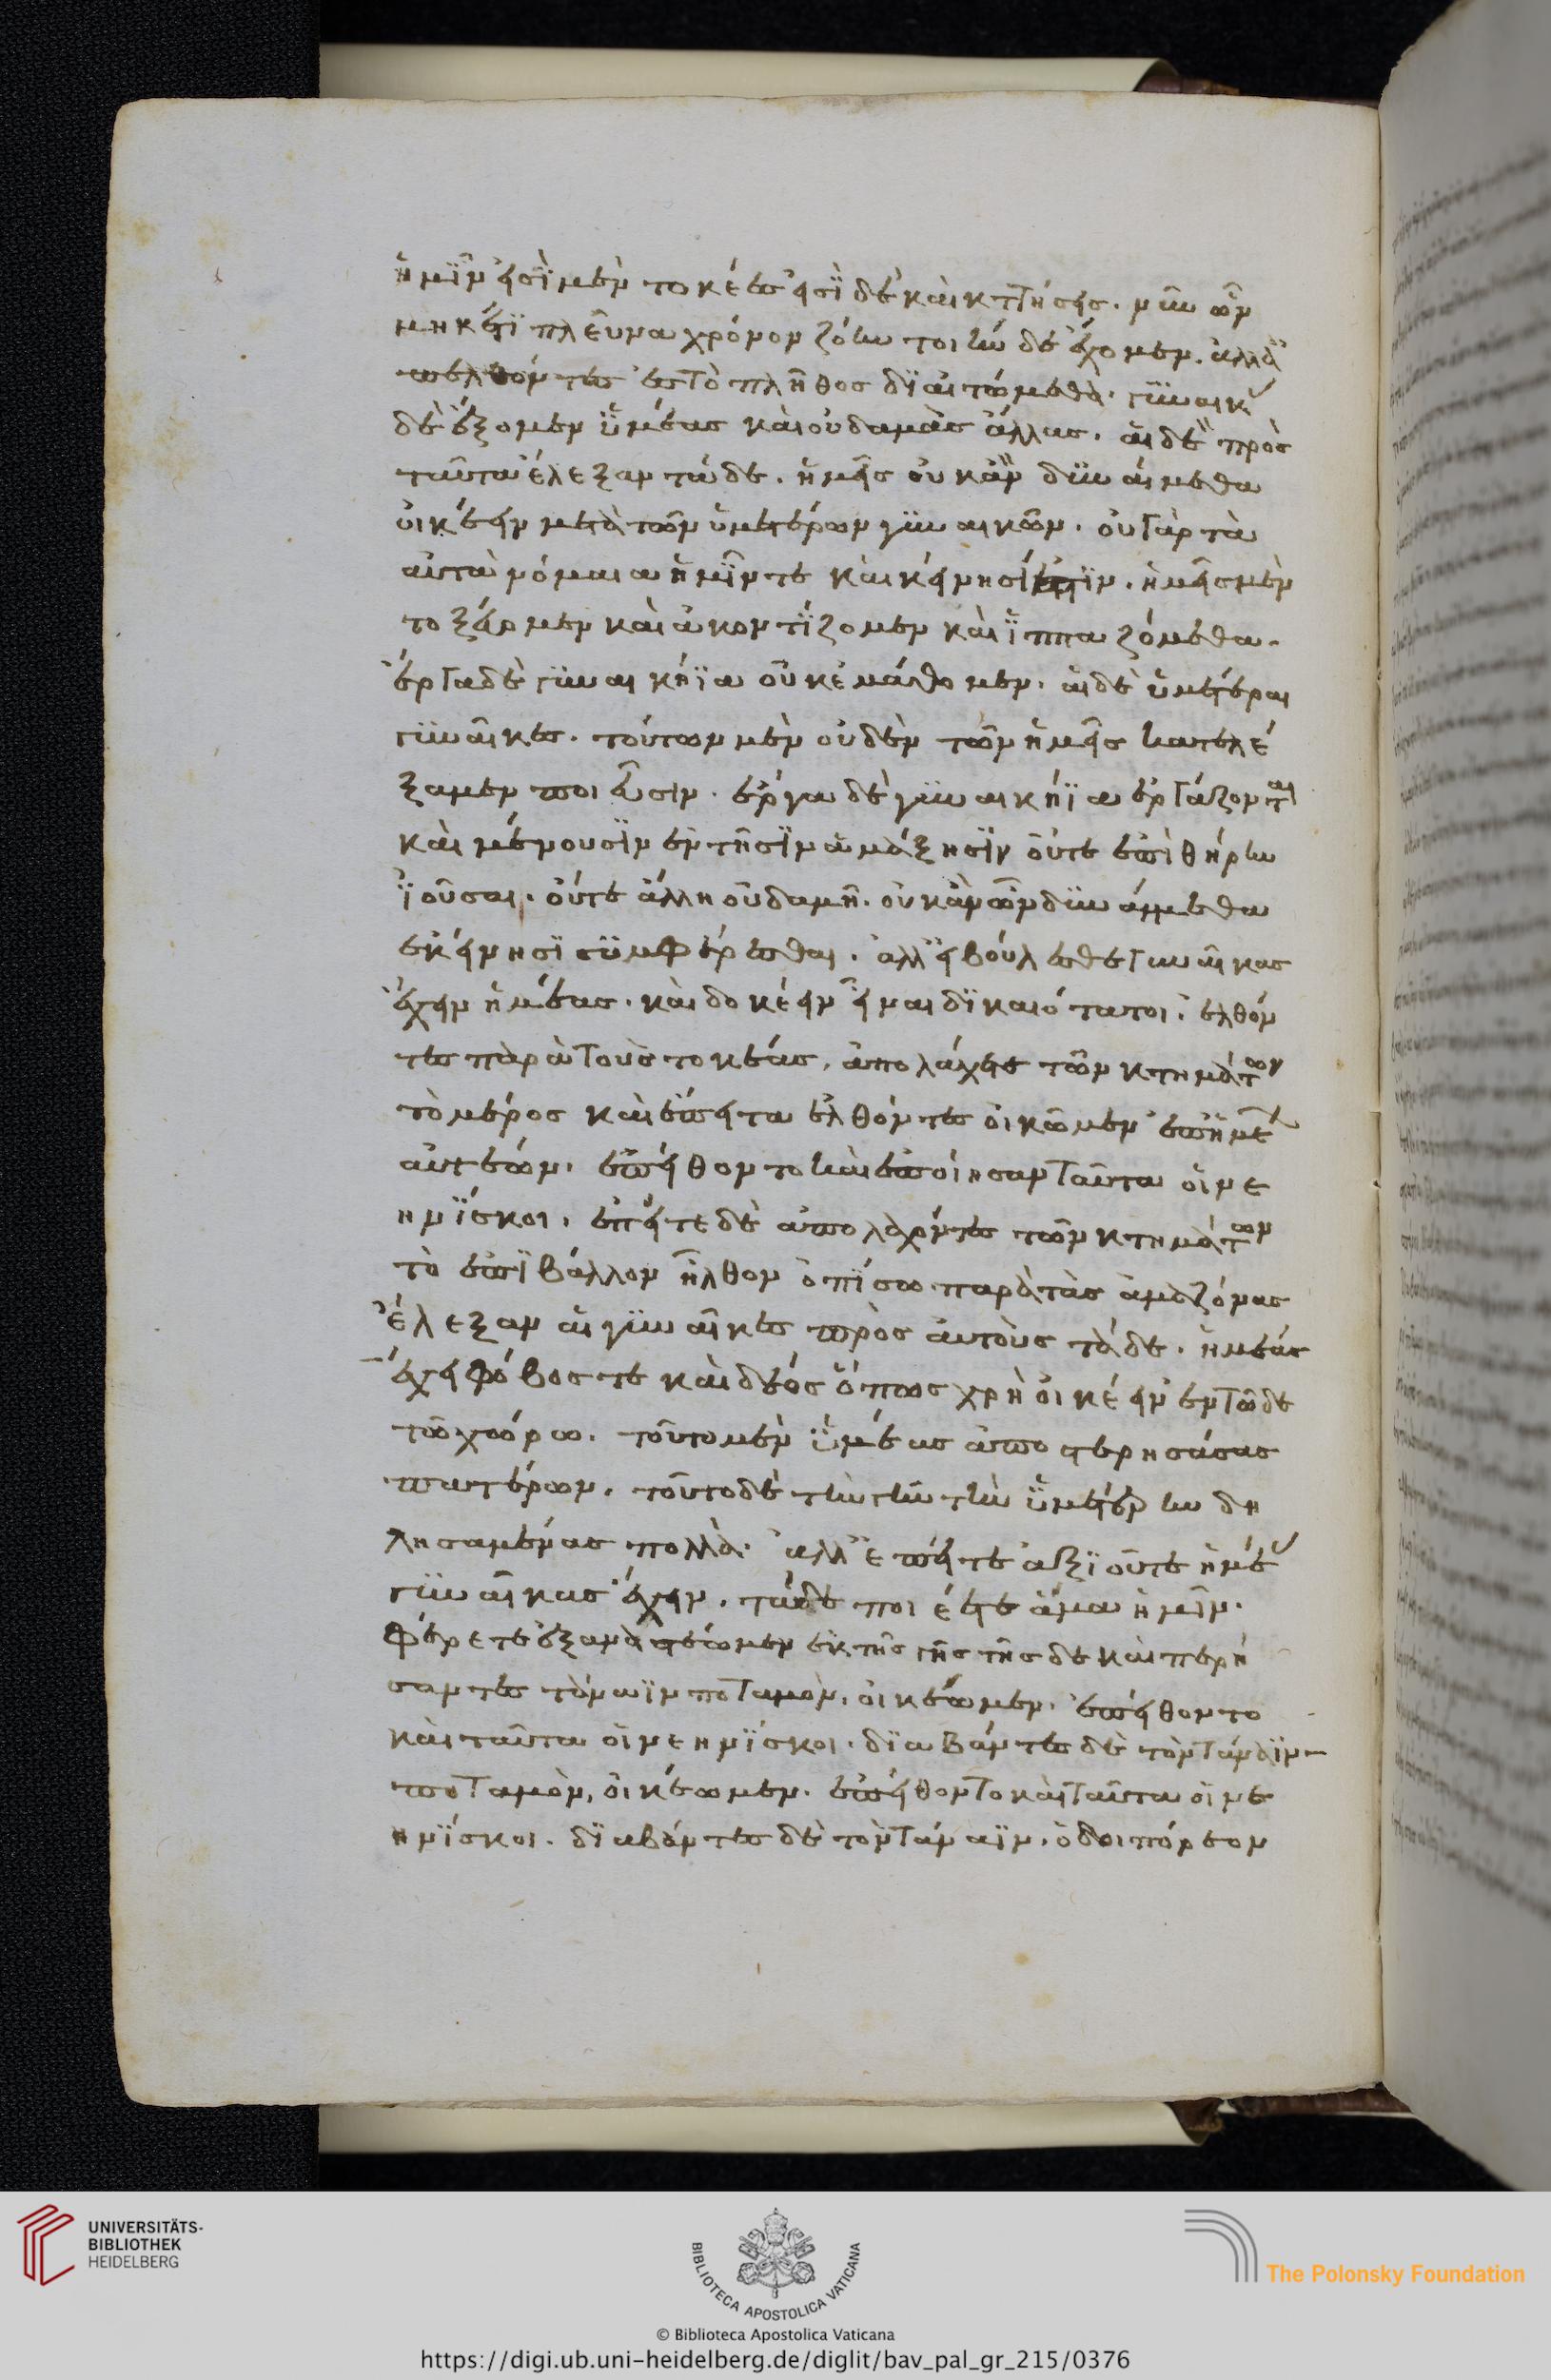 ἡμῖν εἰσὶ μὲν τοκέες εἰσὶ δὲ καὶ κτήσεις. νῦν ὦν
μηκέτι πλεῦνα χρόνον ζόην τοιήνδε ἔχομεν. ἀλλὰ
πελθόντες ἐς τὸ πλῆθος διαιτώμεθα. γυναικ
δὲ ἕξομεν ὑμέας καὶ οὐδαμὰς ἄλλας. αἱ δὲ πρὸς
ταῦτα ἔλεξαν τάδε. ἡμεῖς οὐκ ἂν δυναίμεθα
οἰκέειν μετὰ τῶν ὑμετέρων γυναικῶν. οὐ γὰρ τὰ
αὐτὰ νόμαια ἡμῖν τε καὶ κείνῃσί ἐστιν. ἡμεῖς μὲν
τοξεύομεν καὶ ἀκοντίζομεν καὶ ἱππαζόμεθα.
ἔργα δὲ γυναικήϊα οὐκ ἐμάθομεν. αἱ δὲ ὑμέτεραι
γυναῖκες. τούτων μὲν οὐδὲν τῶν ἡμεῖς κατελέ
ξαμεν ποιεῦσιν. ἔργα δὲ γυναικήϊα ἐργάζονται
καὶ μένουσιν ἐν τῇσιν ἁμάξῃσιν οὔτε ἐπὶ θήρην
ἰοῦσαι. οὔτε ἄλλη οὐδαμῇ. οὐκ ἂν ὦν δυναίμεθα
ἐκείνῃσι συμφέρεσθαι. ἀλλ' εἰ βούλεσθε γυναῖκας
ἔχειν ἡμέας. καὶ δοκέειν εἶναι δικαιότατοι. ἐλθόν
τες παρὰ τοὺς τοκέας, ἀπολάχετε τῶν κτημάτων
τὸ μέρος καὶ ἔπειτα ἐλθόντες οἰκῶμεν ἐπ' ἡμε
αυτέων. ἐπείθοντο καὶ ἐποίησαν ταῦτα οἱ νε
ηνίσκοι. ἐπείτε δὲ ἀπολαχόντες τῶν κτημάτων
τὸ ἐπιβάλλον ἦλθον ὀπίσω παρὰ τὰς ἀμαζόνας
ἔλεξαν αἱ γυναῖκες πρὸς αὐτοὺς τάδε. ἡμέας
ἔχει φόβος τε καὶ δέος ὅπως χρὴ οἰκέειν ἐν τῶδε
τῶ χώρω. τοῦτο μὲν ὑμέας ἀποστερησάσας
πατέρων. τοῦτο δὲ τὴν γῆν τὴν ὑμετέρην δη
λησαμένας πολλά. ἀλλ' ἐπείτε ἀξιοῦτε ἡμέ
γυναῖκας ἔχειν. τάδε ποιέετε ἅμα ἡμῖν.
φέρετε ἐξαναστέωμεν ἐκ τῆς γῆς τῆσδε καὶ περή
σαντες τάναϊν ποταμὸν, οἰκέωμεν. ἐπείθοντο
καὶ ταῦτα οἱ νεηνίσκοι. διαβάντες δὲ τὸν τάναϊν
ποταμὸν, οἰκέωμεν. ἐπείθοντο καὶ ταῦτα οἱ νε
ηνίσκοι. διαβάντες δὲ τὸν τάναϊν, ὁδοιπόρεον
UNIVERSITÄTS-
BIBLIOTHEK
HEIDELBERG
BIBLIOTECA APOSTOLICA VATICANA
The Polonsky Foundation
© Biblioteca Apostolica Vaticana
https://digi.ub.uni-heidelberg.de/diglit/bav_pal_gr_215/0376